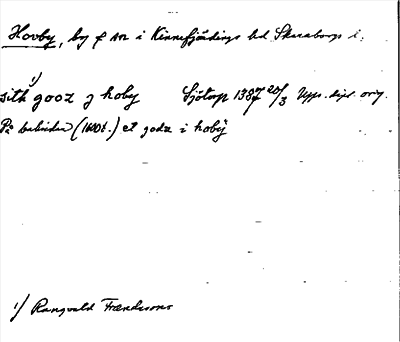 Hovby, by f sn i Kinnefjärdings hd Skaraborgs l.
sith 1) gooz j hoby Sjötorp 1387 20/3 Upps. dipl. orig.
På baksidan (1600t.) et godz i hobÿ
1) Rangvald Frændesons